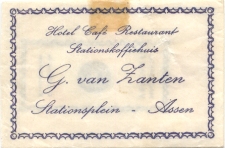 Hotel Café Restaurant
Stationskoffiehuis
G. van Zanten
Stationsplein - Assen